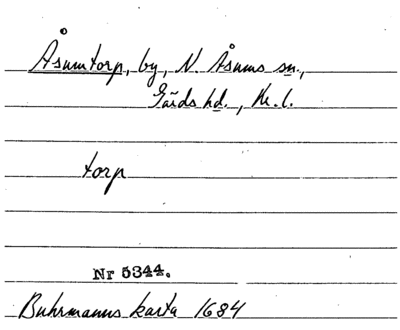 Åsumtorp, by, N. Åsums sn.,
Gärds hd., Kr. l.
torp
Nr 5344.
Buhrmanns karta 1684